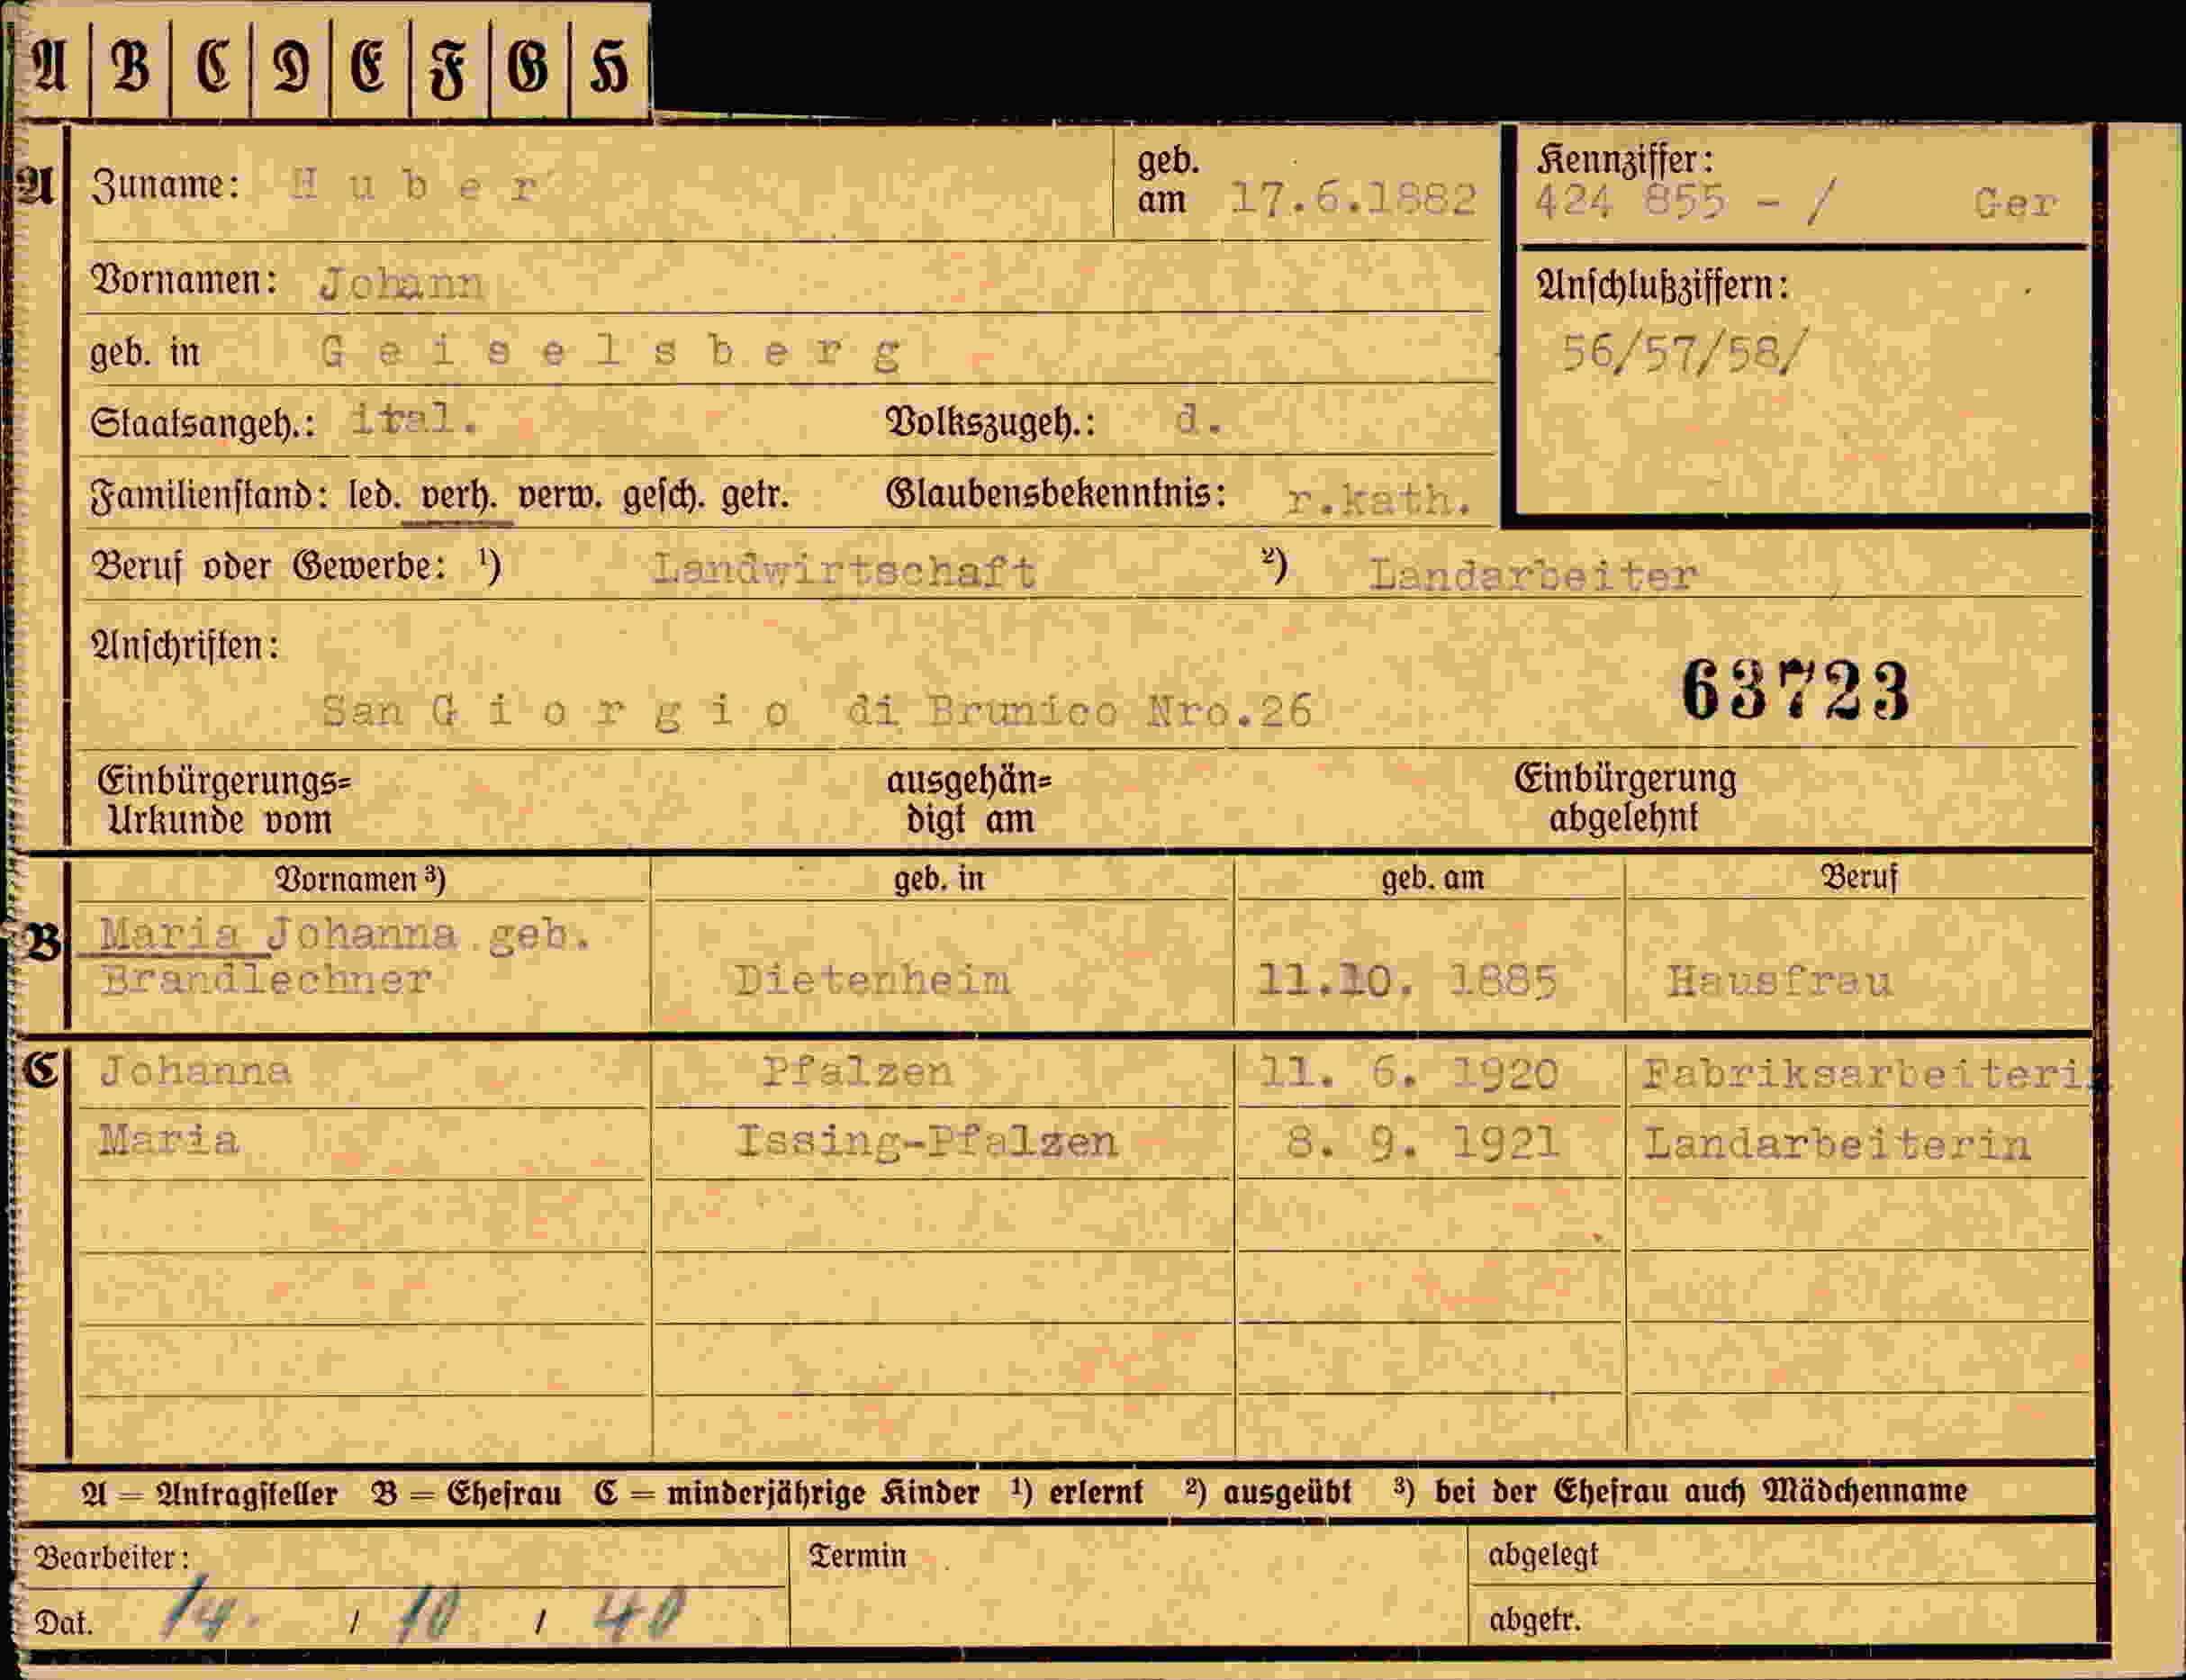 A B C D E F G H
A Zuname: Huber geb. am 17.6.1882 Kennziffer: 424 855 - / Ger
Vornamen: Johann Anschlußziffern:
geb. in Geiselsberg 56/57/58/
Staatsangeh.: ital. Volkszugeh.: d.
Familienstand: led. verh. verw. gesch. getr. Glaubensbekenntnis: r.kath.
Beruf oder Gewerbe: ¹) Landwirtschaft ²) Landarbeiter
Anschriften:
San Giorgio di Brunico Nro.26 63723
Einbürgerungs= ausgehän= Einbürgerung
Urkunde vom digt am abgelehnt
Vornamen ³) geb. in geb. am Beruf
B Maria Johanna geb.
Brandlechner Dietenheim 11.10. 1885 Hausfrau
C Johanna Pfalzen 11. 6. 1920 Fabriksarbeiteri
Maria Issing-Pfalzen 8. 9. 1921 Landarbeiterin
A = Antragsteller B = Ehefrau C = minderjährige Kinder ¹) erlernt ²) ausgeübt ³) bei der Ehefrau auch Mädchenname
Bearbeiter: Termin abgelegt
Dat. 14. / 10 / 40 abgetr.